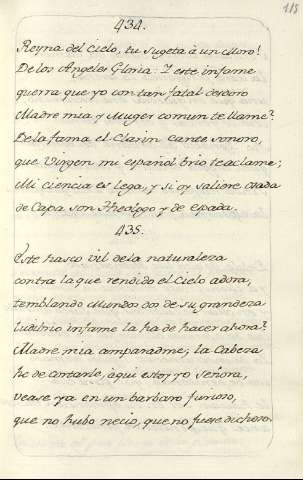 118
434.
Reyna del Cielo, tu sugeta à un Moro!
De los Angeles Gloria! I este infame
querra que yo con tan fatal desdoro
Madre mia y Muger comun te llame?
De la fama el Clarin cante sonoro,
que Virgen mi español brio te aclame;
Mi ciencia es lega, y si oy saliere
de Capa son Hidalgo y de espada.
435.
Este hasco vil de la naturaleza
contra la que rendido el Cielo adora,
temblando Mundos dos de su grandeza
ludibrio infame la ha de hacer ahora?
Madre mia amparadme; la Cabeza
he de cortarle, aqui estoy yo Señora,
vease ya en un barbaro furioso,
que no hubo necio, que no fuese dichoso.